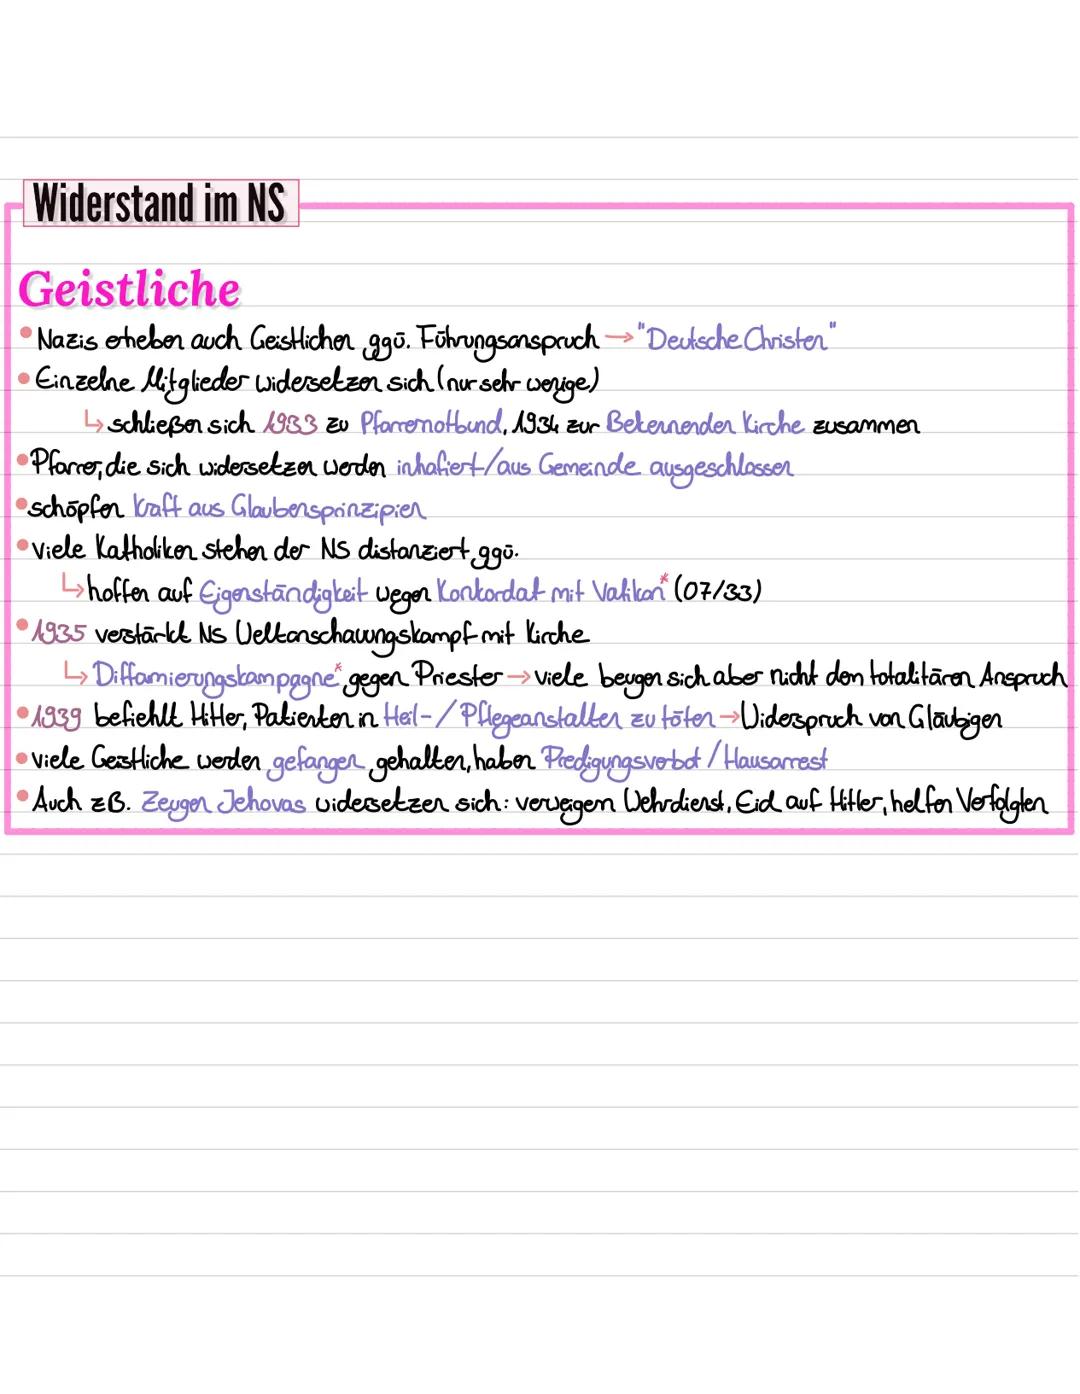 Widerstand im NS
Geistliche
• Nazis erheben auch Geistlichen ggü. Führungsanspruch → "Deutsche Christen"
• Einzelne Mitglieder widersetzen sich (nur sehr wenige)
↳ schließen sich 1933 zu Pfarrernotbund, 1934 zur Bekennenden Kirche zusammen
• Pfarrer, die sich widersetzen werden inhafiert/aus Gemeinde ausgeschlossen
• schöpfen Kraft aus Glaubensprinzipien
• viele Katholiken stehen der NS distanziert ggü.
↳ hoffen auf Eigenständigkeit wegen Konkordat mit Vatikan* (07/33)
• 1935 verstärkt NS Weltanschauungskampf mit Kirche
↳ Diffamierungskampagne* gegen Priester → viele beugen sich aber nicht dem totalitären Anspruch
• 1939 befiehlt Hitler, Patienten in Heil-/Pflegeanstalten zu töten → Widerspruch von Gläubigen
• viele Geistliche werden gefangen gehalten, haben Predigungsverbot / Hausarrest
• Auch zB. Zeugen Jehovas widersetzen sich: verweigern Wehrdienst, Eid auf Hitler, helfen Verfolgten